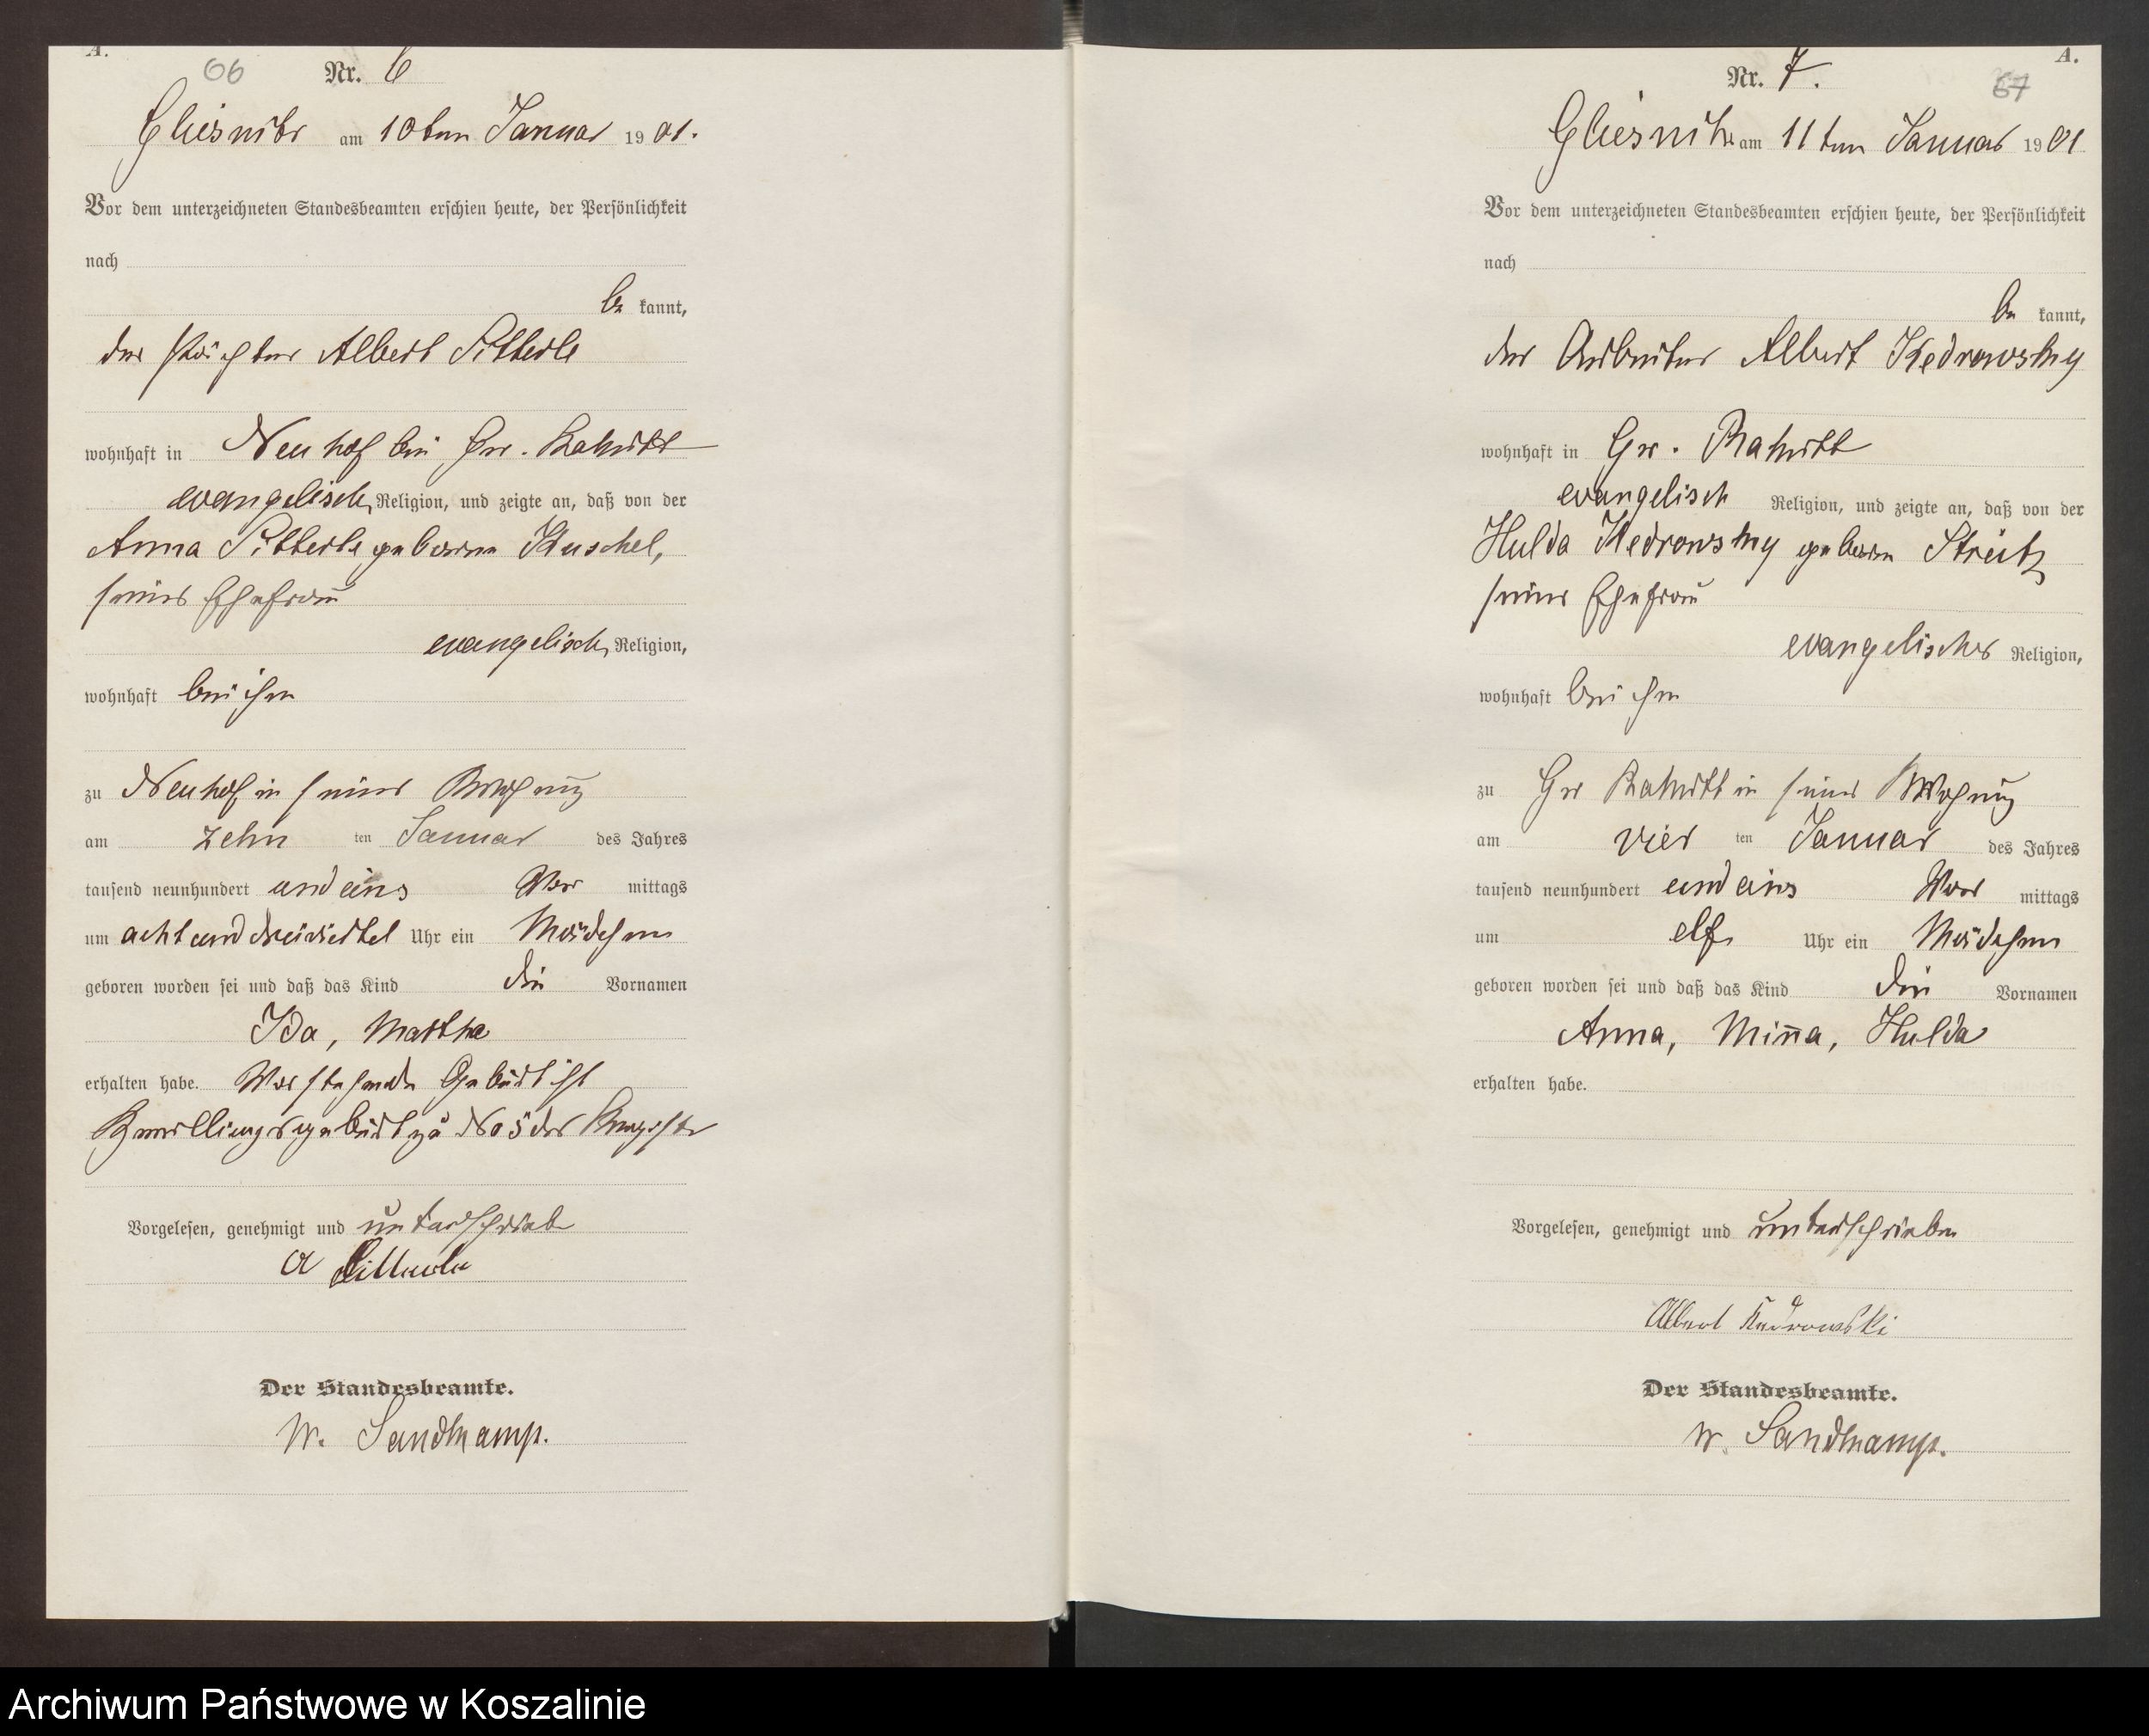 A.
66
Nr. 6
Gliesnitz am 10ten Januar 1901.
Vor dem unterzeichneten Standesbeamten erschien heute, der Persönlichkeit
nach
be kannt,
der Pächter Albert Litterle
wohnhaft in Neuhof bei Gr. Rakitt
evangelisch Religion, und zeigte an, daß von der
Anna Litterle geborene Kuschel,
seiner Ehefrau
evangelisch Religion,
wohnhaft bei ihm
zu Neuhof in seiner Wohnung
am zehn ten Januar des Jahres
tausend neunhundert und eins Vor mittags
um acht und dreiviertel Uhr ein Mädchen
geboren worden sei und daß das Kind die Vornamen
Ida, Martha
erhalten habe. Vorstehende Geburt ist
Zwillingsgeburt zu No 5 des Register
Vorgelesen, genehmigt und unterschrieben
A Litterle
Der Standesbeamte.
W. Sandkamp.
A.
67
Nr. 7.
Gliesnitz am 11ten Januar 1901
Vor dem unterzeichneten Standesbeamten erschien heute, der Persönlichkeit
nach
be kannt,
der Arbeiter Albert Kedrowsky
wohnhaft in Gr. Rakitt
evangelisch Religion, und zeigte an, daß von der
Hulda Kedrowsky geboren Streitz
seiner Ehefrau
evangelischer Religion,
wohnhaft bei ihm
zu Gr Rakitt in seiner Wohnung
am vier ten Januar des Jahres
tausend neunhundert und eins Vor mittags
um elf Uhr ein Mädchen
geboren worden sei und daß das Kind die Vornamen
Anna, Minna, Hulda
erhalten habe.
Vorgelesen, genehmigt und unterschrieben
Albert Kedrowski
Der Standesbeamte.
W. Sandkamp.
Archiwum Państwowe w Koszalinie